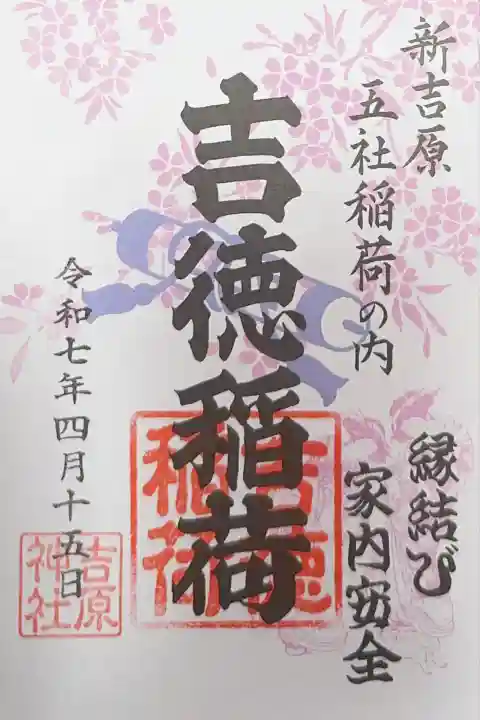 新吉原
五社稲荷の内
縁結び
家内安全
吉徳稲荷
吉徳稲荷
令和七年四月十五日
吉原神社